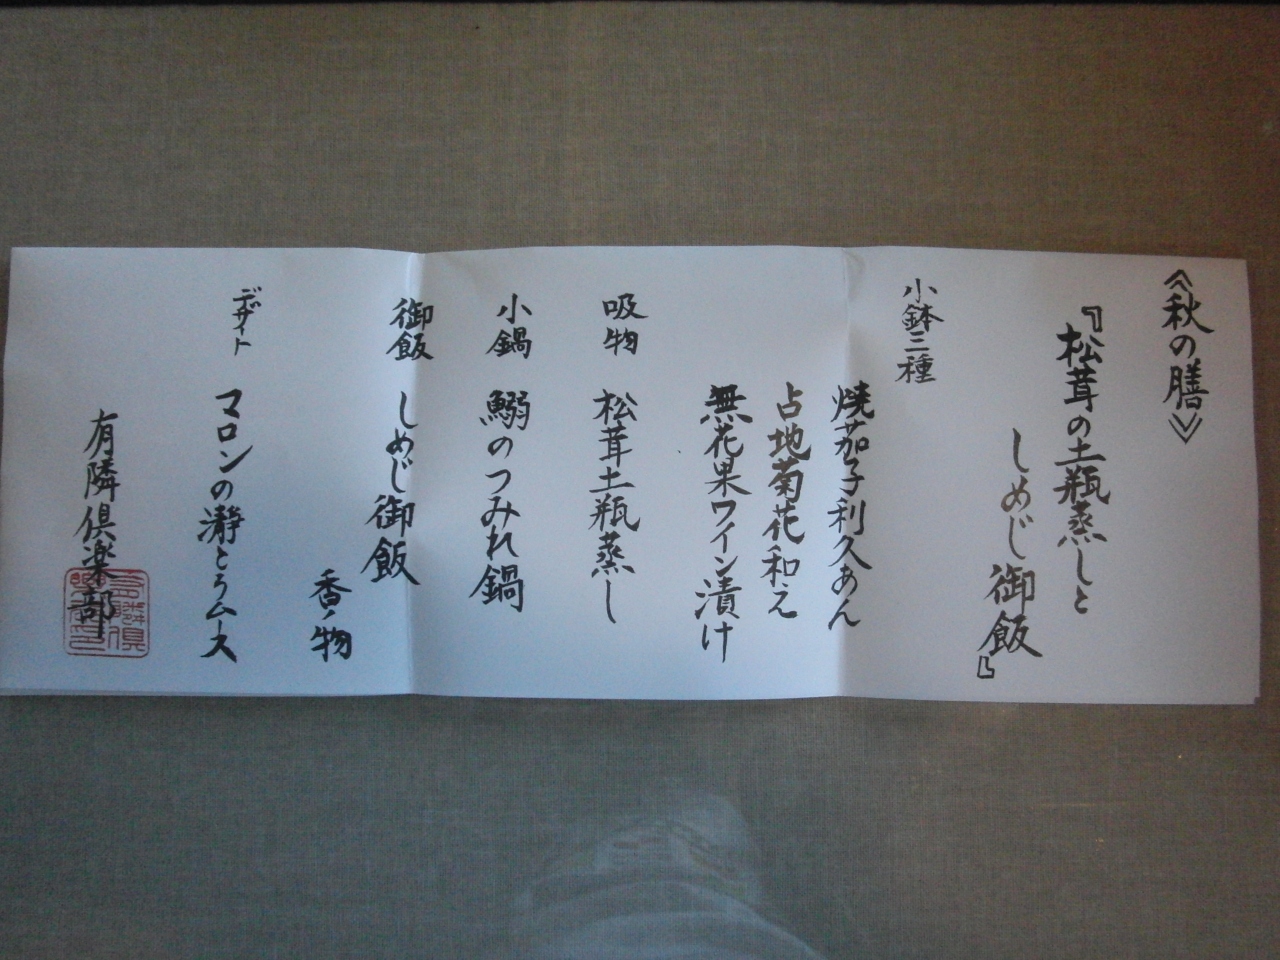 ≪秋の膳≫
『松茸の土瓶蒸しと
しめじ御飯』
小鉢三種
焼茄子利久あん
占地菊花和え
無花果ワイン漬け
吸物
松茸土瓶蒸し
小鍋
鰯のつみれ鍋
御飯
しめじ御飯
香ノ物
デザート
マロンの瀞とろムース
有隣倶楽部